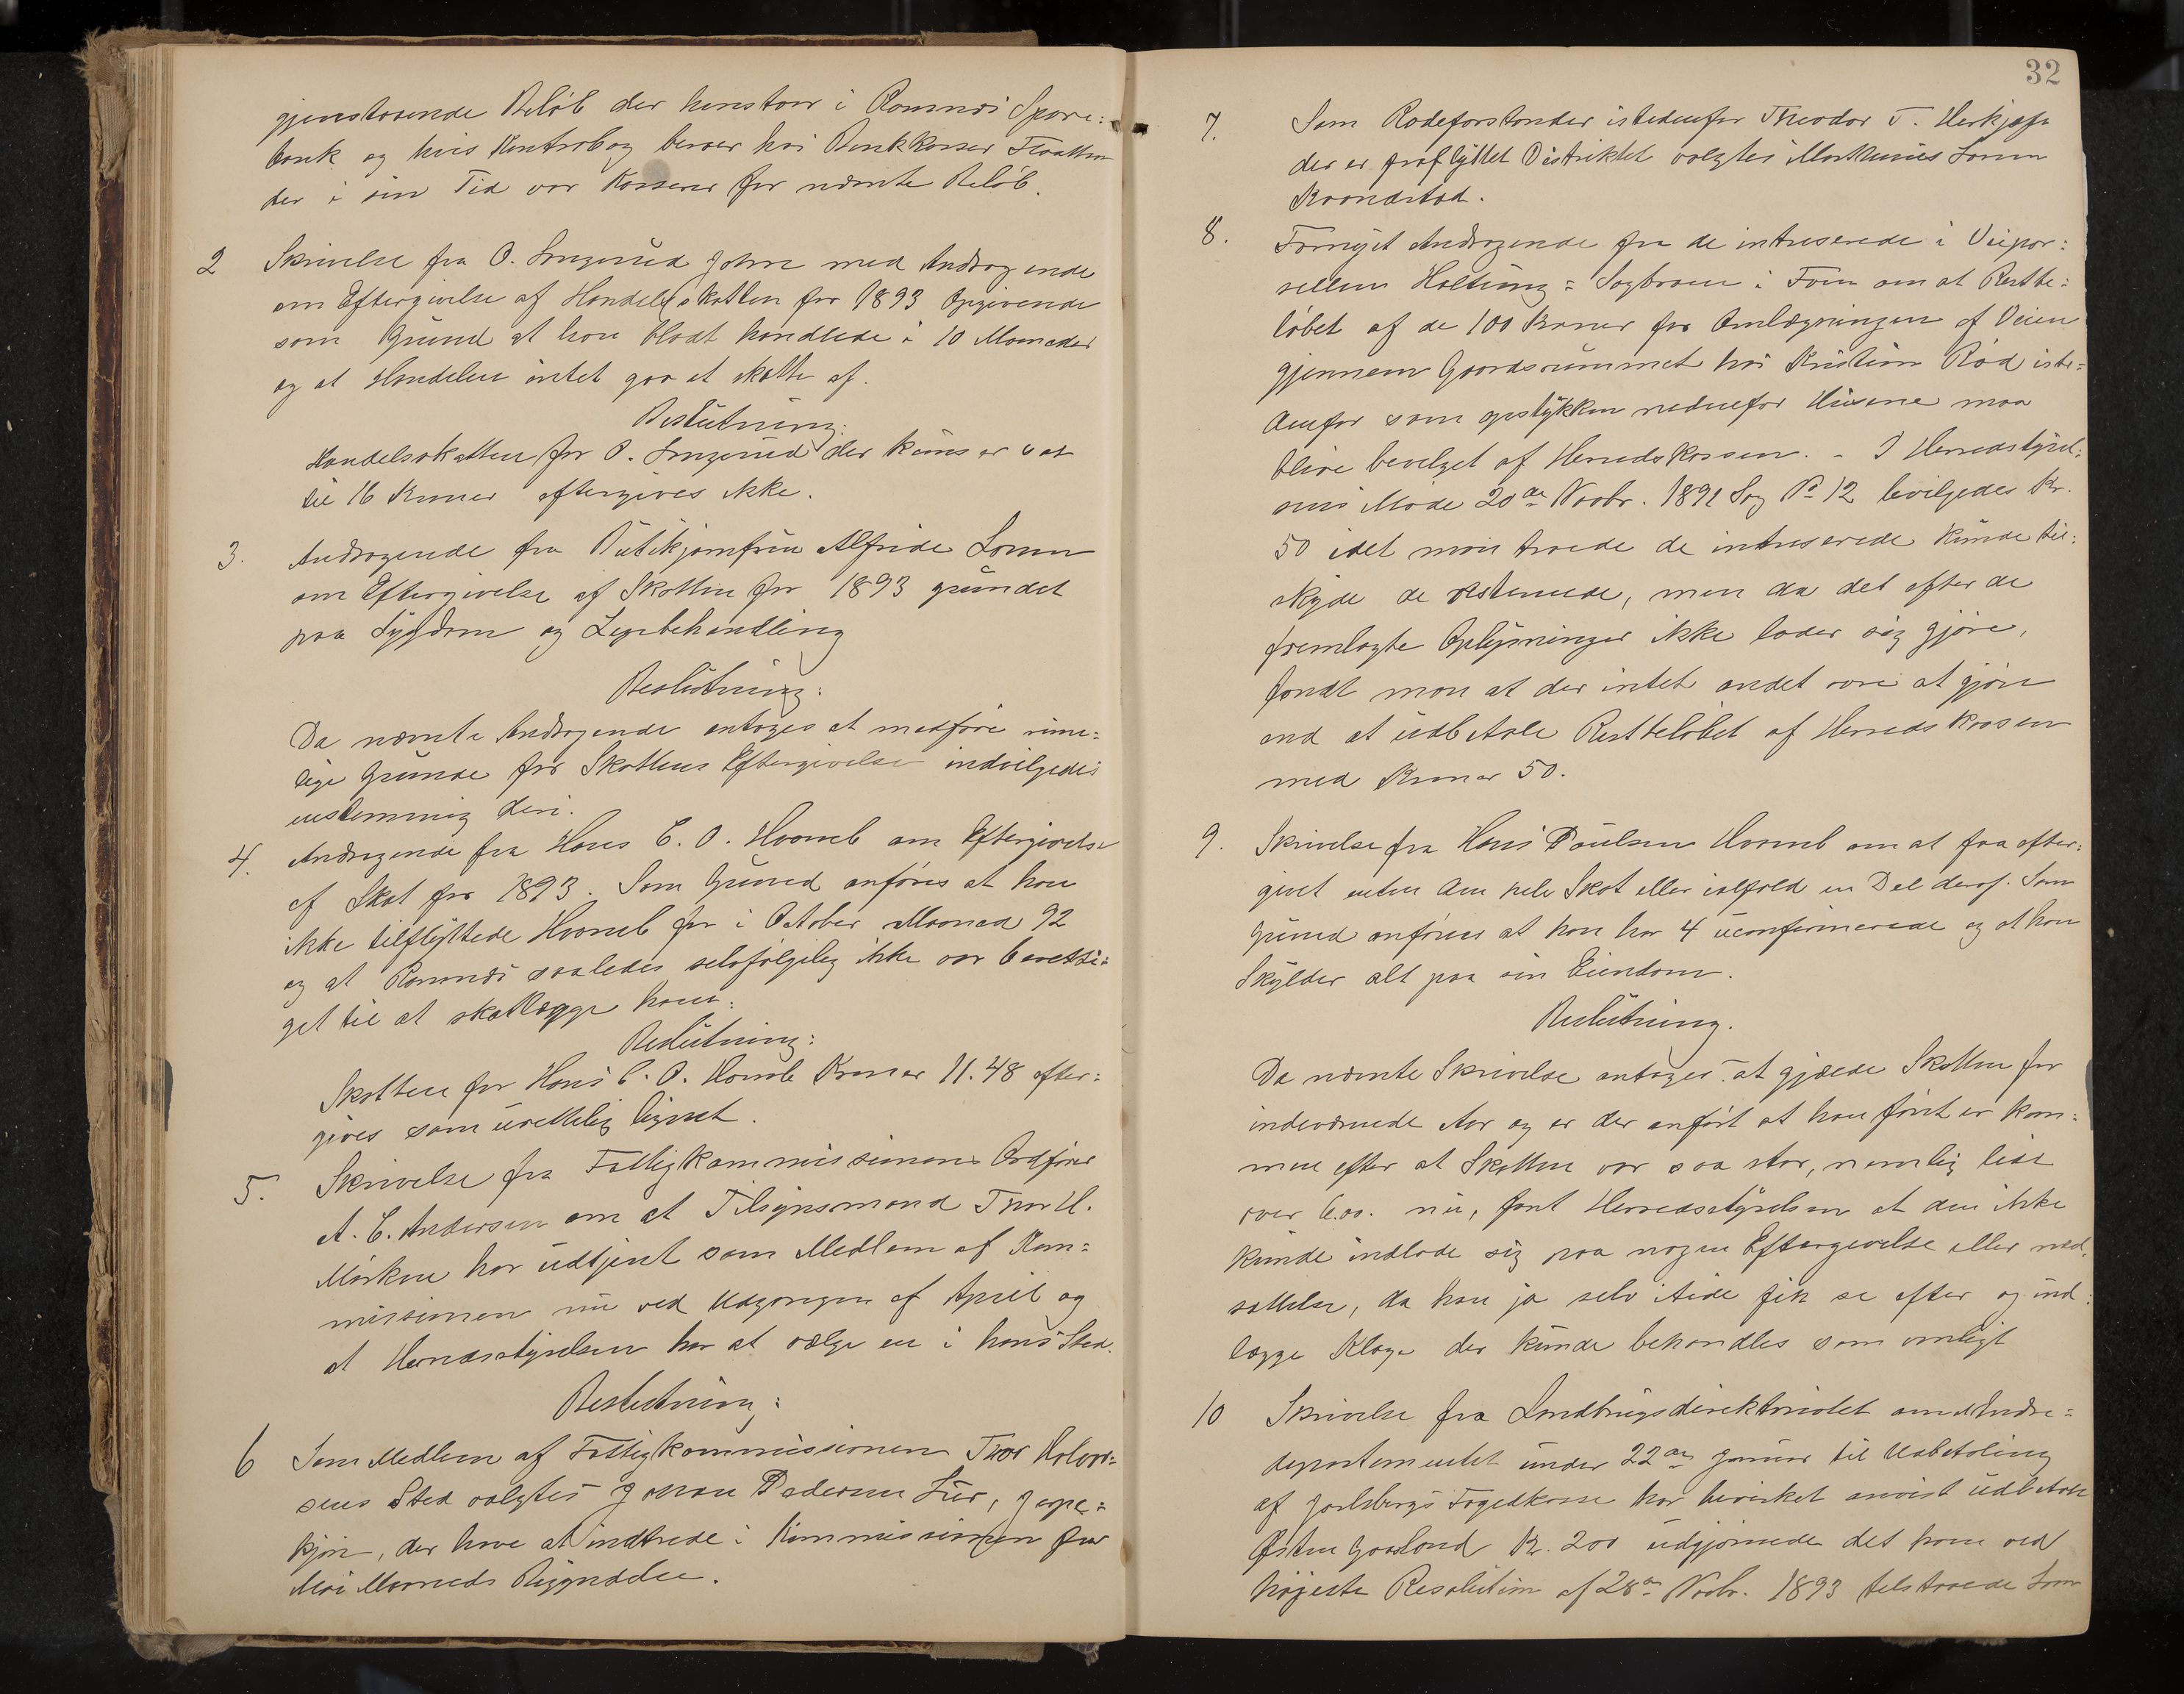 gjenstaaende Beløb der henstaar i Ramnæs Spare=
bank og hvis Kontrabog beroer hos Bankkasser
der i sin Tid var Kasserer for nævnte Beløb.
2 Skrivelse fra O. Langerud med Andragende
om Eftergivelse af Handelsskatten for 1893 Opgivende
som Grund at han blodt handlede i 10 Maaneder
og at Handelen intet gav at skatte af.
Beslutning:
Handelsskatten for O. Langerud der kuns er sat
til 16 Kroner eftergives ikke.
3. Andragende fra Butikjomfru Alfride Larsen
om Eftergivelse af Skatten for 1893 grundet
paa Sygdom og Lægebehandling
Beslutning:
Da nævnte Andragende antages at medføre rime=
lige Grunde for Skattens Eftergivelse indvilgedes
enstemmig deri.
4. Andragende fra Hans C. O. Horneb om Eftergivelse
af Skat for 1893. Som Grund anføres at han
ikke tilflyttede før i October Maaned 92
og at Ramnæs saaledes selvfølgelig ikke var beretti=
get til at skatlægge ham.
Beslutning:
Skatten for Hans C. O. Kroner 11.48 efter=
gives som urettelig lignet.
5. Skrivelse fra Fattigkommissionens Ordfører
A. C. Andersen om at Tilsynsmand Thor H.
har udtjent som Medlem af Kom=
missionen nu ved Udgangen af April og
at Herredsstyrelsen har at vælge en i hans Sted.
Beslutning:
6 Som Medlem af Fattigkommissionen Thor Halvor=
sens Sted valgtes Johan Pedersen
der have at indtræde i Kommissionen fra
Mai Maaneds Begyndelse.
32
7. Som Rodeforstander istedenfor Theodor T.
der er fraflyttet Distriktet valgtes Larsen
8. Fornyet Andragende fra de intreserede i Veipar=
sellen Holtung = i om at Restbe=
løbet af de 100 Kroner for Omlægningen af Veien
gjennem Gaardsrummet hos Kristian Rød iste=
denfor som opstykken nedenfor Husene maa
blive bevilget af Herredskassen. - I Herredsstyrel=
sens Møde 20de Novbr. 1891 Sag No 12 bevilgedes Kr.
50 idet man troede de intreserede kunde til=
skyde de restenrede, men da det efter de
fremlagte Oplysninger ikke lader sig gjøre,
fandt man at der intet andet var at gjøre
end at udbetale Restbeløbet af Herredskassen
med Kroner 50.
9. Skrivelse fra Hans Paulsen om at faa efter=
givet enten den hele Skat eller ialfald en Del deraf. Som
Grund anføres at han har 4 uconfirmerede og at han
Skylder alt paa sin Eiendom.
Beslutning.
Da nævnte Skrivelse antages at gjælde Skatten for
indeværende Aar og er der anført at han først er kom=
men efter at Skatten var saa stor, nemlig lidt
over nu, fant Herredsstyrelsen at den ikke
kunde indlade sig paa nogen Eftergivelse eller ned=
sættelse, da han jo selv itide fik se efter og ind=
lægge Klage der kunde behandles som vanligt
10 Skrivelse fra Landbrugsdirektoriatet om at Indre=
departementet under 22de Januar til Udbetaling
af Jarlsbergs Fogedkasse har bevirket anvist udbetalt
Østen Gaasland Kr. 200 udgjørende det ham ved
højeste Resolution af 28de Novbr. 1893 tilstaaede Laan